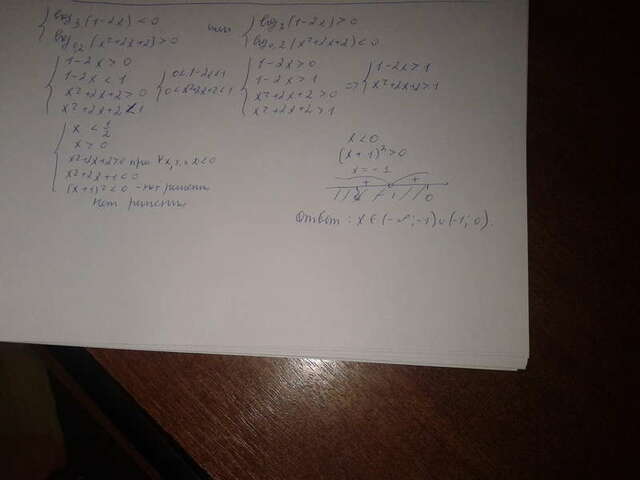 log₃(1-2x) < 0
log₀,₂(x²+2x+2) > 0
или
log₃(1-2x) > 0
log₀,₂(x²+2x+2) < 0
1-2x > 0
1-2x < 1
x²+2x+2 > 0
x²+2x+2 < 1
0 < 1-2x < 1
0 < x²+2x+2 < 1
1-2x > 0
1-2x > 1
x²+2x+2 > 0
x²+2x+2 > 1
=> 1-2x > 1
x²+2x+2 > 1
x < 1/2
x > 0
x²+2x+2>0 при ∀x,
x²+2x+1<0
(x+1)²<0 - нет решени
нет решения
x < 0
(x+1)² > 0
x = -1
+ +
-1 0
Ответ: x ∈ (-∞; -1) ∪ (-1; 0).